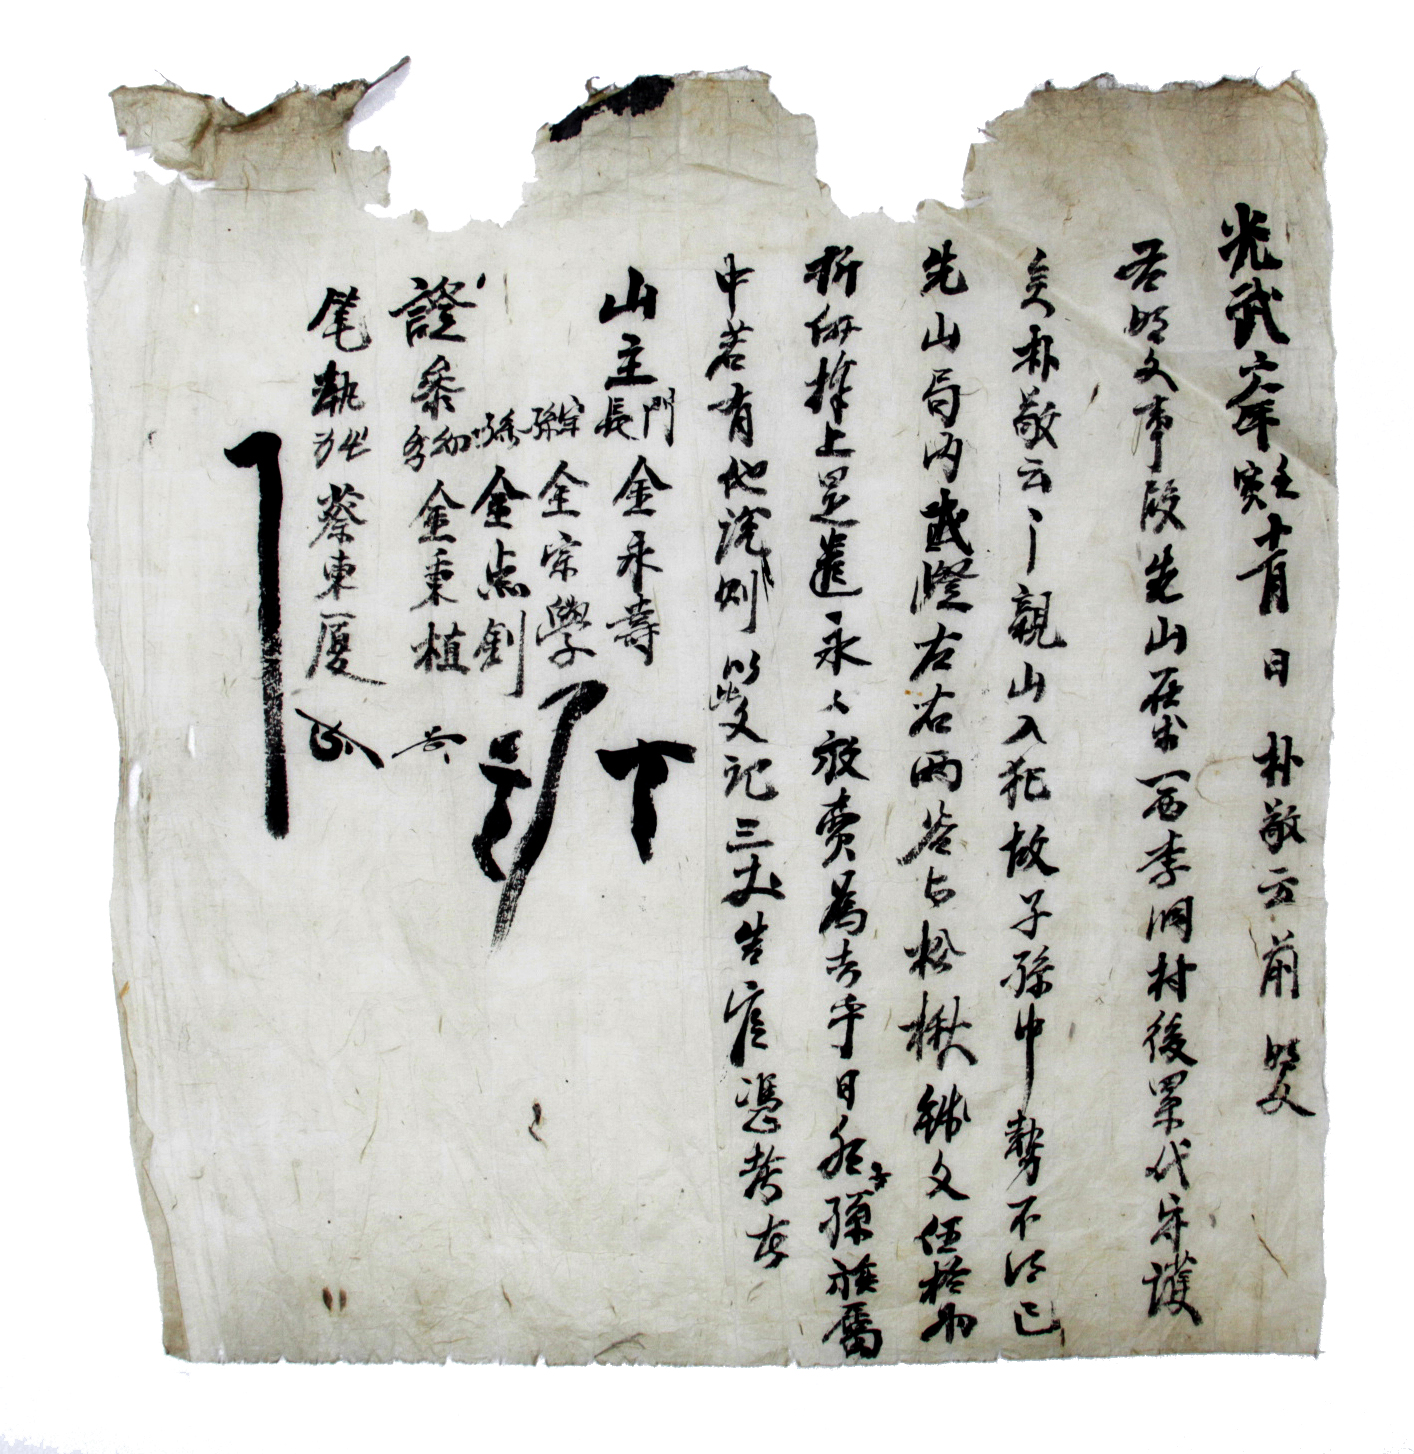 光武六年壬寅十一月 日 朴敬云前明文
右明文事段先山在於一西李洞村後累代守護
矣朴敬云亡親山入犯故子孫中勢不得已
先山局內 左右兩 與松楸錢文伍拾兩
折価捧上是遣永永放賣爲去乎日後子孫族屬
中若有他說則以此文記三丈告官憑考事
山主門長金永壽
宗孫金宗學
孫金点釗
證參幼學金秉植
笔執 蔡東厦